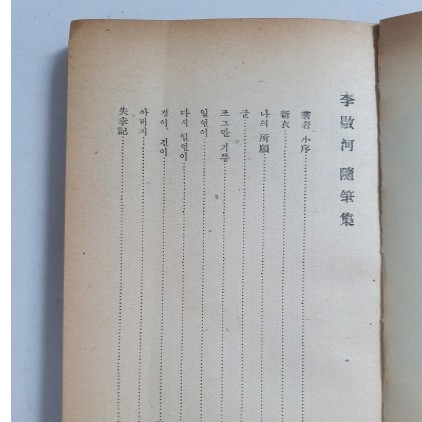 李敭河 隨筆集
小序
新衣
나의 所願
글
조그만 기쁨
일연이
다시 일연이
경이, 건이
아버지
失幸記